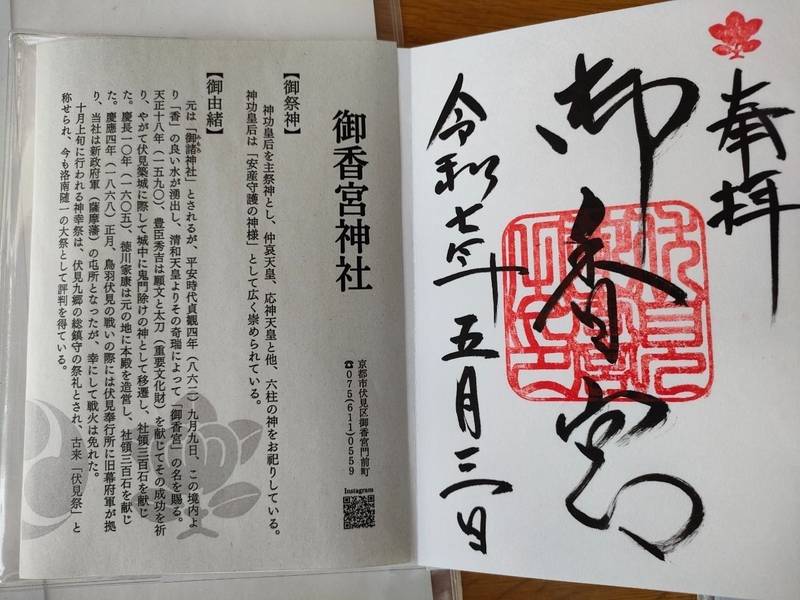 奉拝
御香宮
令和七年五月三日
御香宮神社
京都市伏見区御香宮門前町
☎075(611)0559
Instagram
【御祭神】
神功皇后を主祭神とし、仲哀天皇、応神天皇と他、六柱の神をお祀りしている。
神功皇后は「安産守護の神様」として広く崇められている。
【御由緒】
元は「御諸神社」とされるが、平安時代貞観四年(八六二)九月九日、この境内よ
り「香」の良い水が湧出し、清和天皇よりその奇瑞によって「御香宮」の名を賜る。
天正十八年(一五九〇)、豊臣秀吉は願文と太刀(重要文化財)を献じてその成功を祈
り、やがて伏見築城に際して城中に鬼門除けの神として移遷し、社領三百石を献じ
た。慶長一〇年(一六〇五)、徳川家康は元の地に本殿を造営し、社領三百石を献じ
た。慶應四年(一八六八)正月、鳥羽伏見の戦いの際には伏見奉行所に旧幕府軍が拠
り、当社は新政府軍(薩摩藩)の屯所となったが、幸にして戦火は免れた。
十月上旬に行われる神幸祭は、伏見九郷の総鎮守の祭礼とされ、古来「伏見祭」と
称せられ、今も洛南随一の大祭として評判を得ている。